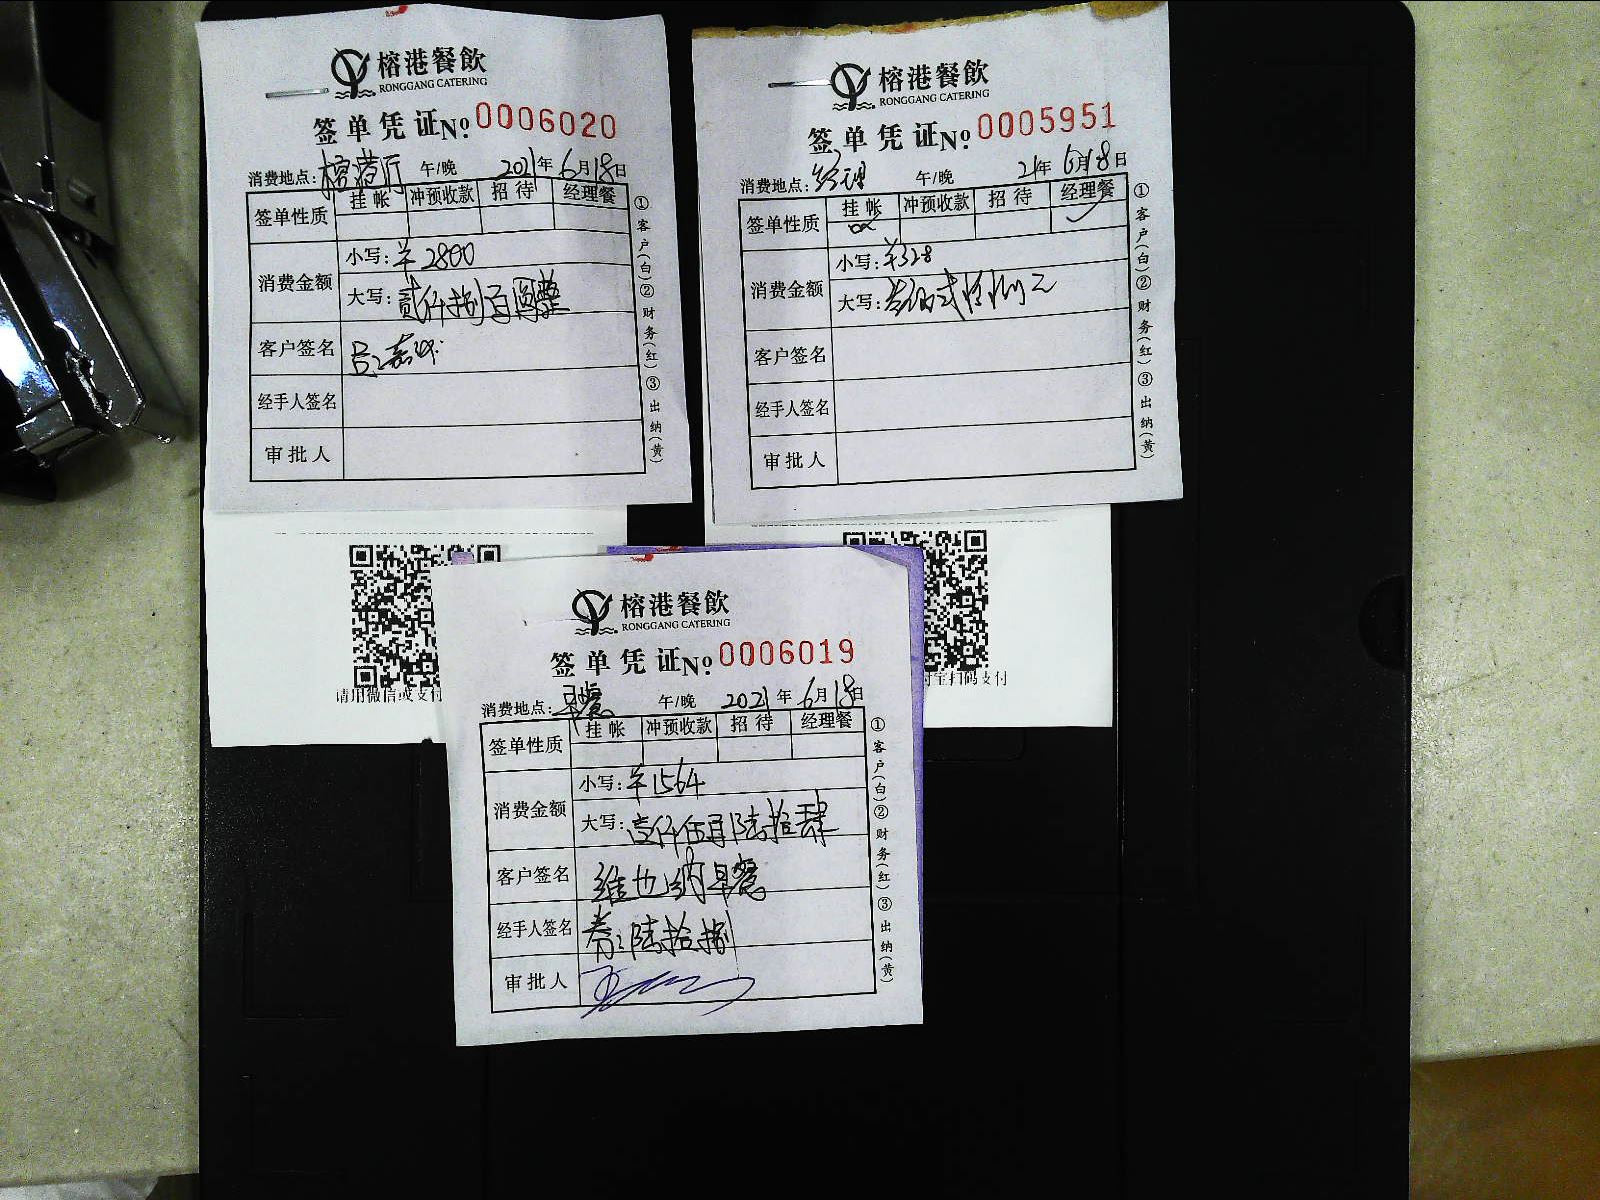 榕港餐飲
RONGGANG CATERING
签单凭证№0006020
消费地点：榕港厅 午/晚 2021年6月18日
签单性质 挂帐 冲预收款 招待 经理餐
消费金额
小写：¥2800
大写：贰仟捌百圆整
客户签名
经手人签名
审批人
①客户(白)②财务(红)③出纳(黄)
榕港餐飲
RONGGANG CATERING
签单凭证№0005951
消费地点：经理 午/晚 21年6月18日
签单性质 挂帐 冲预收款 招待 经理餐
消费金额
小写：¥328
大写：叁佰贰拾捌元
客户签名
经手人签名
审批人
①客户(白)②财务(红)③出纳(黄)
请用微信或支付
宝扫码支付
榕港餐飲
RONGGANG CATERING
签单凭证№0006019
消费地点：早餐 午/晚 2021年6月18日
签单性质 挂帐 冲预收款 招待 经理餐
消费金额
小写：¥1564
大写：壹仟伍百陆拾肆
客户签名 维也纳早餐
经手人签名 券：陆拾捌
审批人
①客户(白)②财务(红)③出纳(黄)